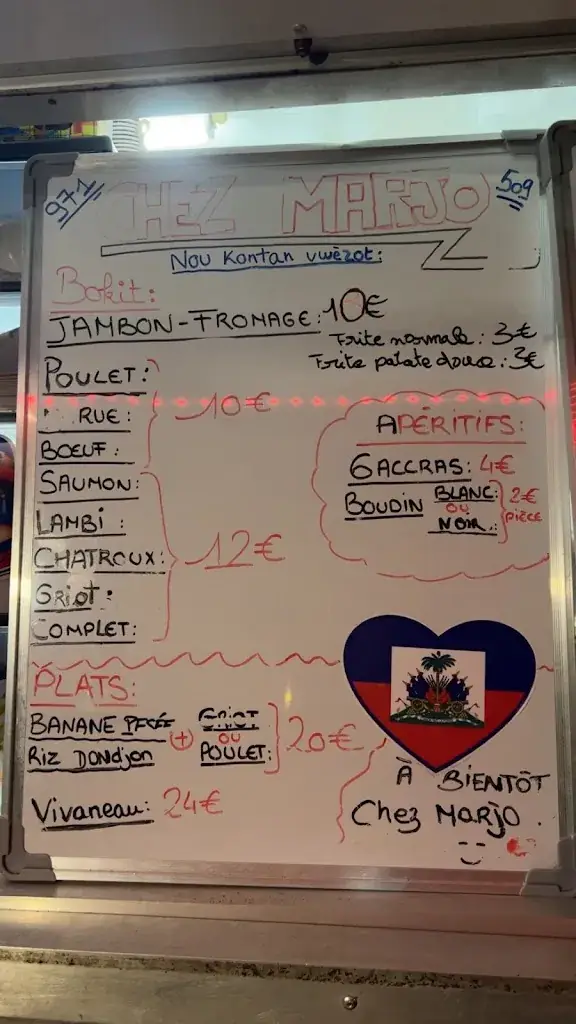 971
CHEZ MARJO
509
Nou Kontan vwèzot:
Bokit:
JAMBON-FROMAGE: 10€
Frite normale: 3€
Frite patate douce: 3€
POULET:
RUE:
BOEUF:
10€
SAUMON:
LAMBi:
CHATROUX:
GRiot:
COMPLET:
12€
APÉRITIFS:
6 ACCRAS: 4€
BOUDIN BLANC:
OU
NOIR.:
2€
PIÈCE
PLATS:
BANANE PESÉE
Riz DONdjon
+
GRIOT
OU
POULET:
20€
Vivaneau: 24€
À BIENTÔT
Chez MARJO.